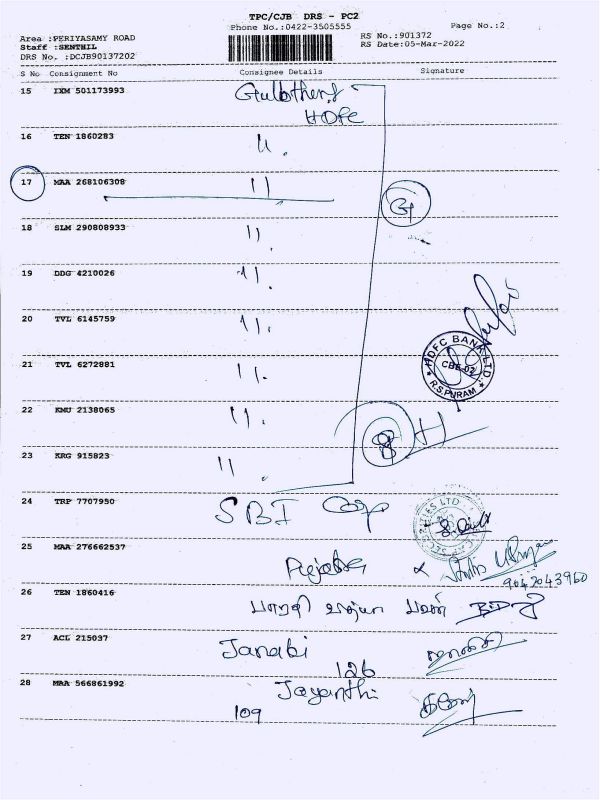 TPC/CJB DRS - PC2
Phone No.:0422-3505555
Page No.:2
Area :PERIYASAMY ROAD
Staff :SENTHIL
DRS No. :DCJB90137202
RS No.:901372
RS Date:05-Mar-2022
S No Consignment No Consignee Details Signature
15 IXM 501173993
HDFC
16 TEN 1860283 ".
17 MAA 268106308 "
18 SLM 290808933 ".
19 DDG 4210026 ".
20 TVL 6145759 ".
21 TVL 6272881 ".
HDFC BANK LTD.
CBE-02
R.S.PURAM
22 KMU 2138065 ".
23 KRG 915823 ".
24 TRP 7707950 SBI Cap
SECURITIES LTD
25 MAA 276662537
9042043960
26 TEN 1860416
27 ACL 215037 Janaki
126
28 MAA 566861992 Jayanthi
109